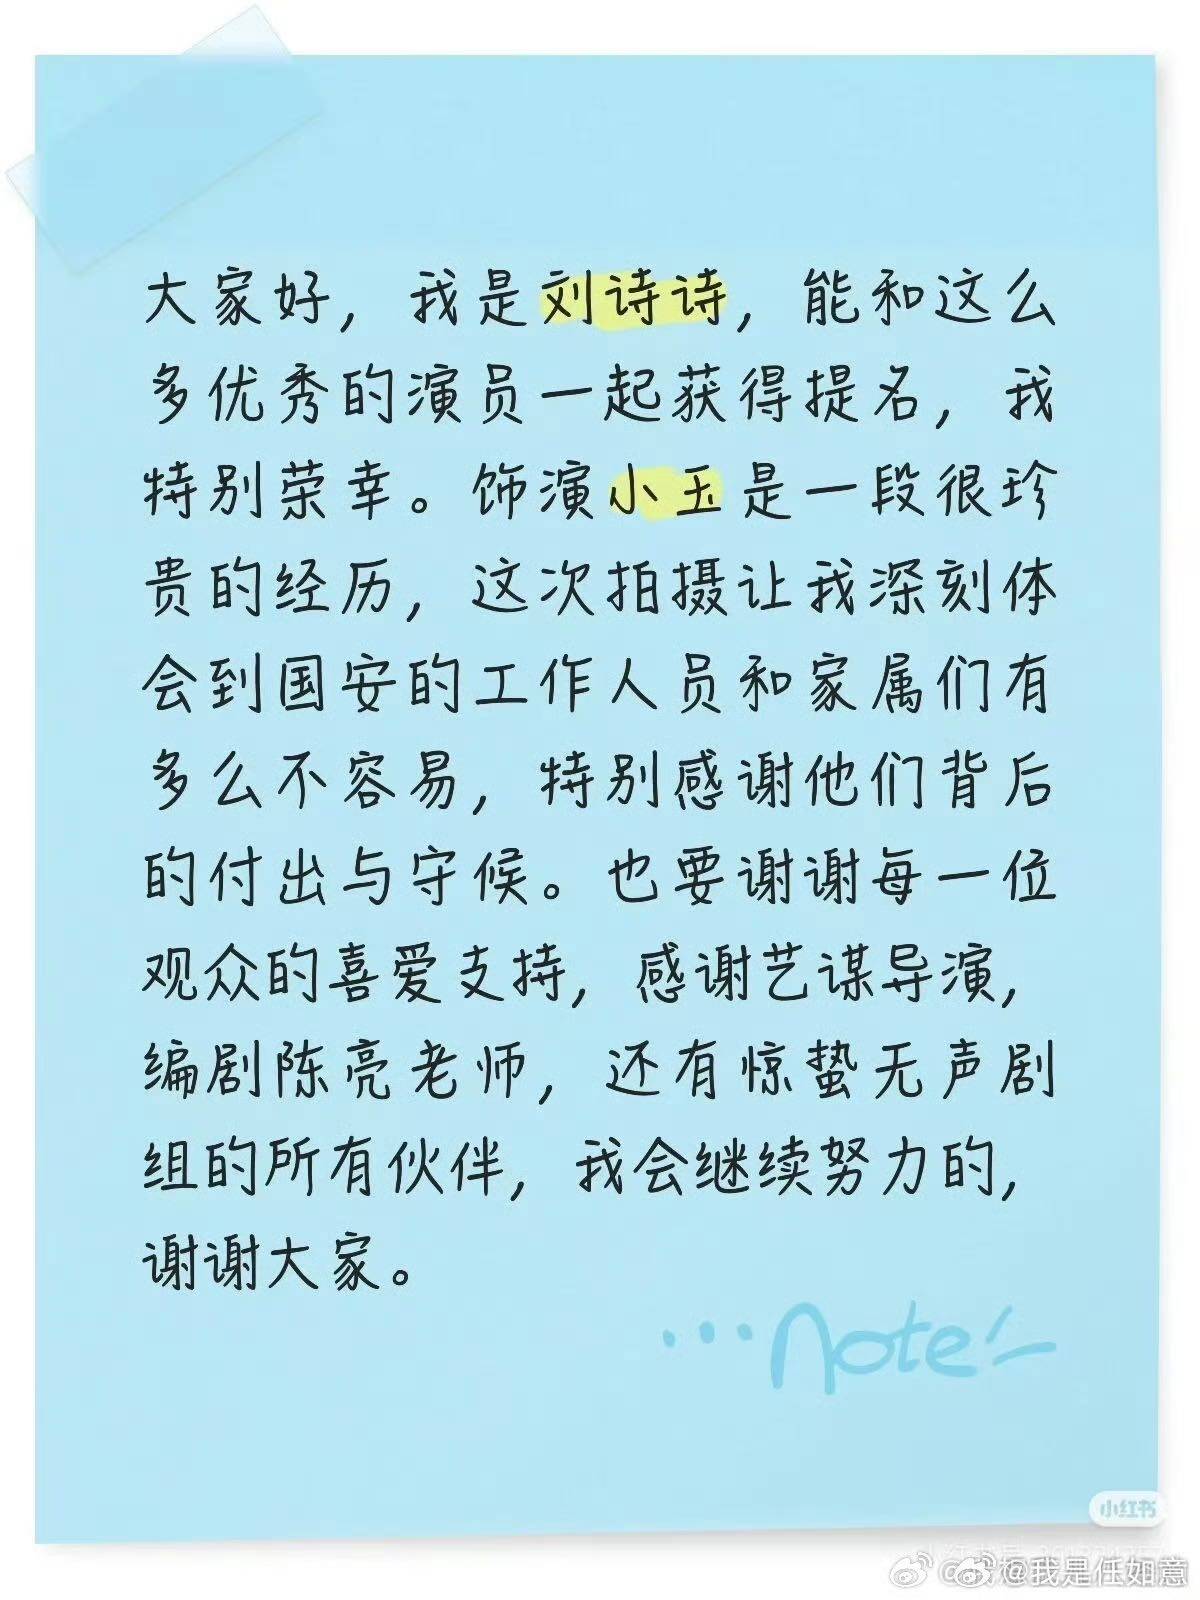 大家好，我是刘诗诗，能和这么
多优秀的演员一起获得提名，我
特别荣幸。饰演小玉是一段很珍
贵的经历，这次拍摄让我深刻体
会到国安的工作人员和家属们有
多么不容易，特别感谢他们背后
的付出与守候。也要谢谢每一位
观众的喜爱支持，感谢艺谋导演，
编剧陈亮老师，还有惊蛰无声剧
组的所有伙伴，我会继续努力的，
谢谢大家。
...note
小红书
@我是任如意